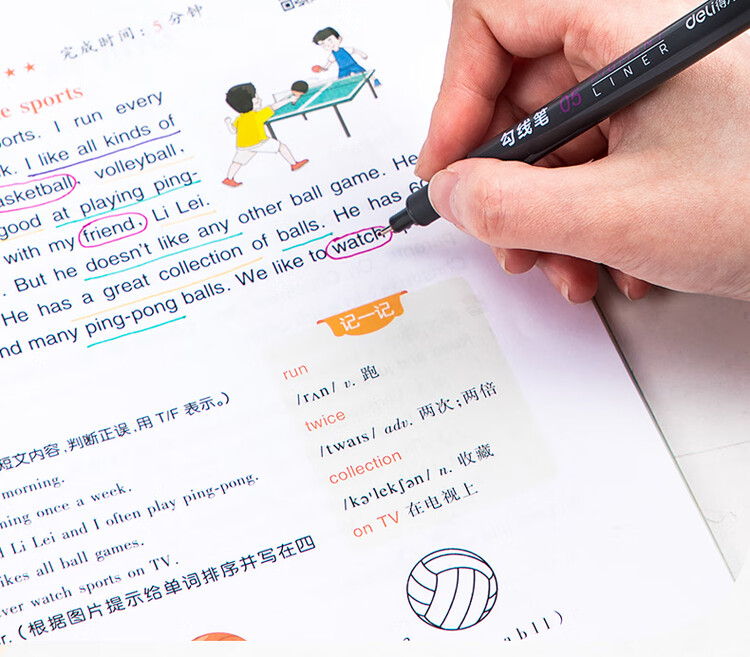 完成时间：5 分钟
e sports
orts. I run every
k. I like all kinds of
asketball, volleyball,
good at playing ping-
with my friend, Li Lei.
. But he doesn't like any other ball game. He
He has a great collection of balls. He has 60
nd many ping-pong balls. We like to watch
记一记
run
/rʌn/ v. 跑
twice
/twaɪs/ adv. 两次；两倍
collection
/kə'lekʃən/ n. 收藏
on TV 在电视上
短文内容，判断正误，用 T/F 表示。）
morning.
ning once a week.
Li Lei and I often play ping-pong.
ikes all ball games.
ver watch sports on TV.
r. （根据图片提示给单词排序并写在四
a b l l )
deli
勾线笔 05 LINER